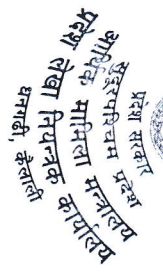 प्रदेश सरकार
सुदूरपश्चिम प्रदेश
आर्थिक मामिला मन्त्रालय
प्रदेश लेखा नियन्त्रक कार्यालय
धनगढी, कैलाली